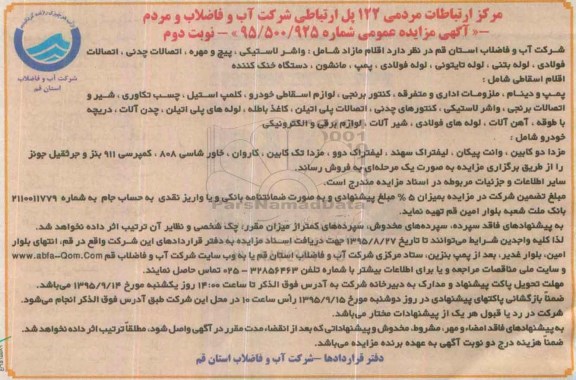 مرکز ارتباطات مردمی ۱۲۲ پل ارتباطی شرکت آب و فاضلاب و مردم
-« آگهی مزایده عمومی شماره ۹۵/۵۰۰/۹۲۵ » – نوبت دوم
شرکت آب و فاضلاب
استان قم
شرکت آب و فاضلاب استان قم در نظر دارد اقلام مازاد شامل : واشر لاستیکی ، پیچ و مهره ، اتصالات چدنی ، اتصالات
فولادی ، لوله بتنی ، لوله تایتونی ، لوله فولادی ، پمپ ، مانشون ، دستگاه خنک کننده
اقلام اسقاطی شامل :
پمپ و دینام ، ملزومات اداری و متفرقه ، کنتور برنجی ، لوازم اسقاطی خودرو ، کلمپ استیل ، چسب تکاوری ، شیر و
اتصالات برنجی ، واشر لاستیکی ، کنتورهای چدنی ، اتصالات پلی اتیلن ، کاغذ باطله ، لوله های پلی اتیلن ، چدن آلات ، دریچه
با طوقه ، آهن آلات ، لوله های فولادی ، شیر آلات ، لوازم برقی و الکترونیکی
خودرو شامل :
مزدا دو کابین ، وانت پیکان ، لیفتراک سهند ، لیفتراک دوو ، مزدا تک کابین ، کاروان ، خاور شاسی ۸۰۸ ، کمپرسی ۹۱۱ بنز و جرثقیل جونز
را از طریق برگزاری مزایده به صورت یک مرحله‌ای به فروش رساند.
سایر اطلاعات و جزئیات مربوطه در اسناد مزایده مندرج است.
مبلغ تضمین شرکت در مزایده بمیزان ۵ % مبلغ پیشنهادی و به صورت ضمانتنامه بانکی و یا واریز نقدی به حساب جام به شماره ۲۱۱۰۰۱۱۷۷۹
بانک ملت شعبه بلوار امین قم تهیه نماید.
به پیشنهادهای فاقد سپرده، سپرده‌های مخدوش، سپرده‌های کمتر از میزان مقرر، چک شخصی و نظایر آن ترتیب اثر داده نخواهد شد.
لذا کلیه واجدین شرایط می‌توانند تا تاریخ ۱۳۹۵/۸/۲۷ جهت دریافت اسناد مزایده به دفتر قراردادهای این شرکت واقع در قم، انتهای بلوار
امین، بلوار غدیر، بعد از پمپ بنزین، ستاد مرکزی شرکت آب و فاضلاب استان قم یا به وب سایت شرکت آب و فاضلاب قم www.abfa-Qom.Com
و سایت ملی مناقصات مراجعه و یا برای اطلاعات بیشتر با شماره تلفن ۳۲۸۵۶۴۶۳ – ۰۲۵ تماس حاصل نمایند.
مهلت تحویل پاکت پیشنهاد و مدارک به دبیرخانه شرکت به آدرس فوق الذکر تا ساعت ۱۴:۰۰ روز یکشنبه مورخ ۱۳۹۵/۹/۱۴ می‌باشد.
ضمنا بازگشائی پاکتهای پیشنهادی در روز دوشنبه مورخ ۱۳۹۵/۹/۱۵ رأس ساعت ۱۰ در محل این شرکت طبق آدرس فوق الذکر انجام می‌شود.
شرکت در رد یا قبول هر یک از پیشنهادات مختار می‌باشد.
به پیشنهادهای فاقد امضاء و مهر، مشروط، مخدوش و پیشنهاداتی که بعد از انقضاء مدت مقرر در آگهی واصل شود، مطلقاً ترتیب اثر داده نخواهد شد.
ضمناً هزینه درج دو نوبت آگهی به عهده برنده مزایده می‌باشد.
دفتر قراردادها –شرکت آب و فاضلاب استان قم